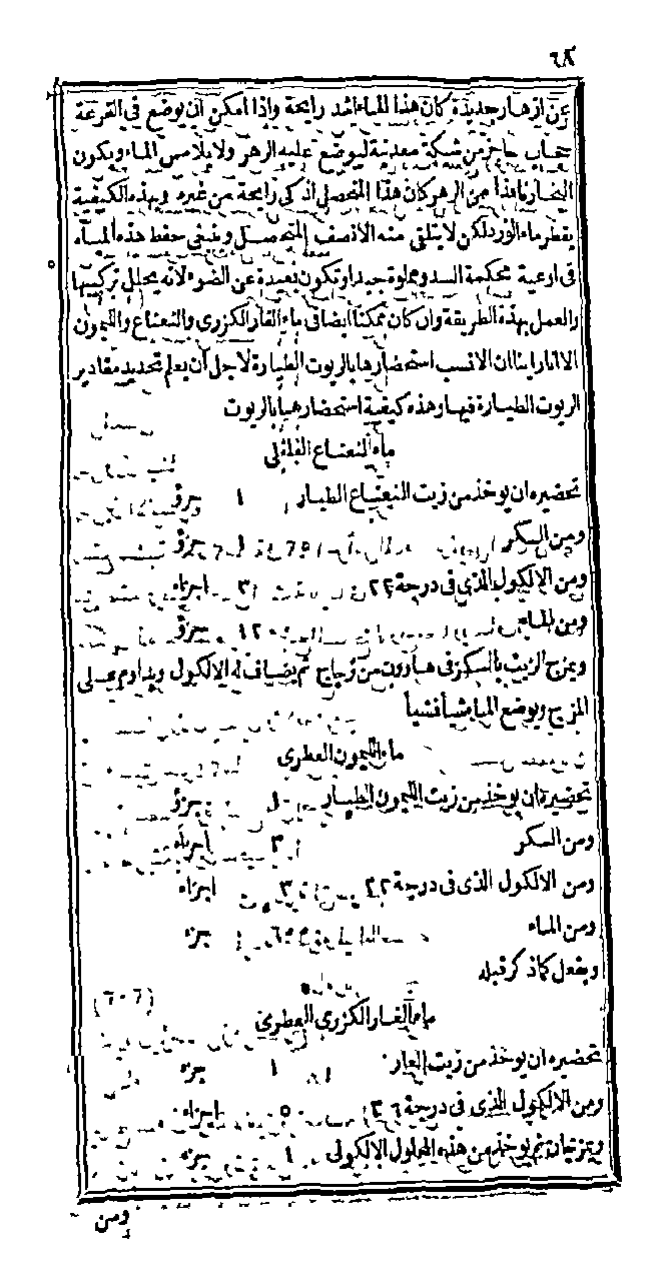 ٦٨
عن ازهار جديدة كان هذا الماء اشد رايحة واذا امكن ان يوضع فى القرعة
حجاب حاجز من شبكة معدنية ليوضع عليه الزهر ولا يلامس الماء ويكون
البخار نافذا من الزهر كان هذا المتحصل اذكى رايحة من غيره وبهذه الكيفية
يقطر ماء الورد لكن لا يتلقى منه الا نصف المتحصل وينبغى حفظ هذه المياه
فى اوعية محكمة السد ومملوة جيدا وتكون بعيدة عن الضوء لانه يحلل تركيبها
والعمل بهذه الطريقة وان كان ممكنا ايضا فى ماء الغار الكرزى والنعناع والليمون
الا انا راينا ان الانسب استحضارها بالزيوت الطيارة لاجل ان يعلم تحديد مقادير
الزيوت الطيارة فيها وهذه كيفية استحضارها بالزيوت
ماء النعناع الفلفلى
تحضيره ان يوخذ من زيت النعناع الطيار ١ جزؤ
ومن السكر جزؤ
ومن الالكول الذى فى درجة ٢٢ ٣ اجزاء
ومن الماء جزؤ
ويمزج الزيت بالسكر فى هاون من زجاج ثم يضاف له الالكول ويداوم على
المزج ويوضع الماء شيأ فشيأ
ماء الليمون العطرى
تحضيره ان يوخذ من زيت الليمون الطيار ١ جزؤ
ومن السكر ٣ اجزاء
ومن الالكول الذى فى درجة ٢٢ ٣ اجزاء
ومن الماء جزء
ويفعل كما ذكر قبله
ماء الغار الكرزى العطرى
تحضيره ان يوخذ من زيت الغار ١ جزء
ومن الالكول الذى فى درجة ٥ اجزاء
ويمزجان ثم يوخذ من هذه المحلول الالكولى ١ جزء
ومن